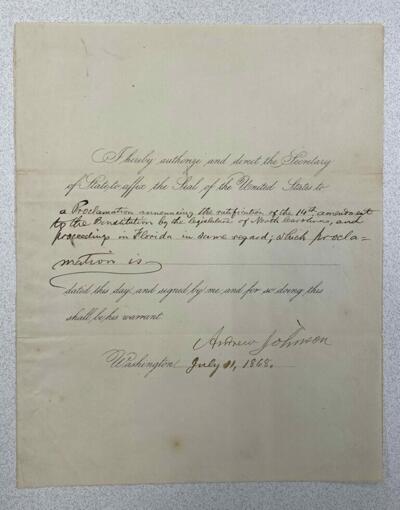 I hereby authorize and direct the Secretary
of State to affix the Seal of the United States to
a Proclamation announcing the ratification of the 14th amendment
to the Constitution by the legislature of North Carolina, and
proceedings in Florida in same regard; which procla=
mation is
dated this day, and signed by me, and for so doing this
shall be his warrant.
Andrew Johnson
Washington, July 11, 1868.